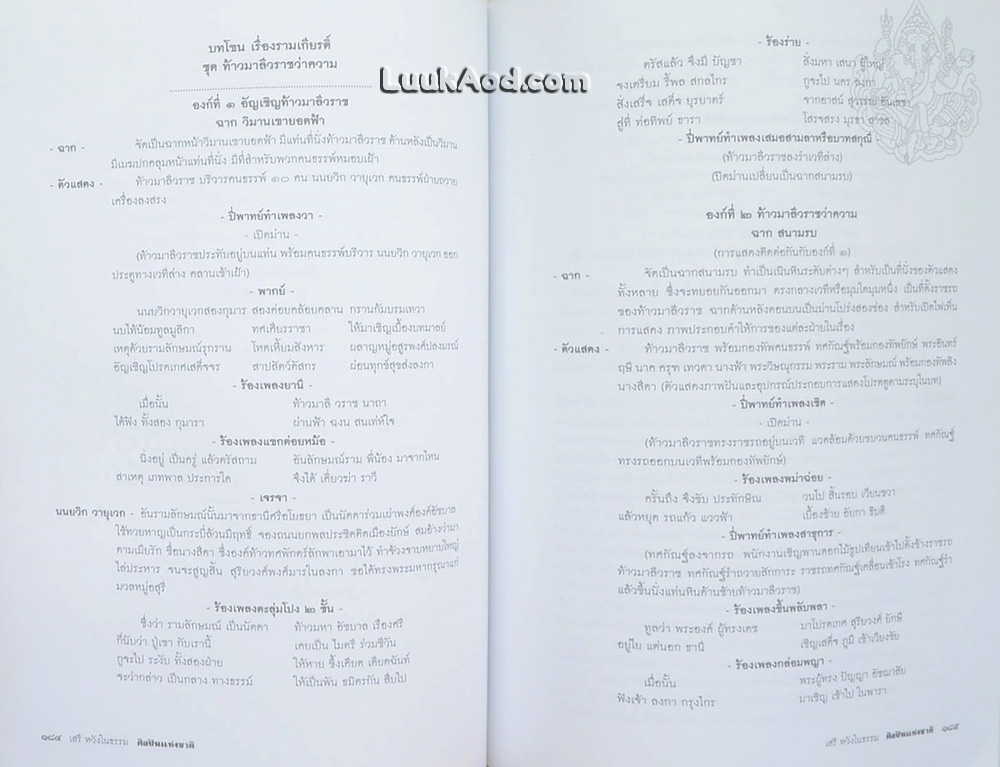 บทโขน เรื่องรามเกียรติ์
ชุด ท้าวมาลีวราชว่าความ
LuukAod.com
องก์ที่ ๑ อัญเชิญท้าวมาลีวราช
ฉาก วิมานเขายอดฟ้า
- ฉาก - จัดเป็นฉากหน้าวิมานเขายอดฟ้า มีแท่นที่นั่งท้าวมาลีวราช ด้านหลังเป็นวิมาน
มีเมฆปกคลุมหน้าแท่นที่นั่ง มีที่สำหรับพวกคนธรรพ์หมอบเฝ้า
- ตัวแสดง - ท้าวมาลีวราช บริวารคนธรรพ์ ๑๐ คน นนยวิก วายุเวก คนธรรพ์ฝ่ายถวาย
เครื่องลงสรง
- ปี่พาทย์ทำเพลงวา -
- เปิดม่าน -
(ท้าวมาลีวราชประทับอยู่บนแท่น พร้อมคนธรรพ์บริวาร นนยวิก วายุเวก ออก
ประตูทางเวทีล่าง คลานเข้าเฝ้า)
- พากย์ -
นนยวิกวายุเวกสองกุมาร สองค่อยคล้อยคลาน กรานก้มบรมเทวา
นบไท้น้อมทูลมูลิกา ทศเศียรราชา ให้มาเชิญเบื้องบทมาลย์
เหตุด้วยรามลักษมณ์รุกราน โหดเหี้ยมสังหาร ผลาญหมู่อสูรพงศ์ปลงมรณ์
อัญเชิญโปรดเกศเสด็จจร สาปสัตว์ตัสกร ผ่อนทุกข์สุขส่งลงกา
- ร้องเพลงยานี -
เมื่อนั้น ท้าวมาลี วราช นาถา
ได้ฟัง ทั้งสอง กุมารา ผ่านฟ้า ฉงน สนเท่ห์ใจ
- ร้องเพลงแขกต่อยหม้อ -
นิ่งอยู่ เป็นครู่ แล้วตรัสถาม อันลักษมณ์ราม พี่น้อง มาจากไหน
สาเหตุ เภทพาล ประการใด จึงได้ เคี่ยวฆ่า ราวี
- เจรจา -
นนยวิก วายุเวก - อันรามลักษมณ์นั้นมาจากธานีศรีอโยธยา เป็นนัดดาร่วมเผ่าพงศ์องค์อัชบาล
ใช้ทวยหาญเป็นกระบี่ล้วนมีฤทธิ์ จองถนนยกพลประชิดติดเมืองยักษ์ สมอ้างว่ามา
ตามเมียรัก ชื่อนางสีดา ซึ่งองค์ท้าวทศพักตร์ลักพาเอามาไว้ ทำจ้วงจาบหยาบใหญ่
ไล่ประหาร จนจะสูญสิ้น สุริยวงศ์พงศ์มารในลงกา ขอได้ทรงพระมหากรุณาแก่
มวลหมู่อสุรี
- ร้องเพลงตะลุ่มโปง ๒ ชั้น -
ซึ่งว่า รามลักษมณ์ เป็นนัดดา ท้าวมหา อัชบาล เรืองศรี
ก็นับว่า ปู่เขา กับเรานี้ เคยเป็น ไมตรี ร่วมชีวัน
กูจะไป ระงับ ทั้งสองฝ่าย ให้หาย ซึ้งเคียด เดียดฉันท์
จะว่ากล่าว เป็นกลาง ทางธรรม์ ให้เป็นพัน ธมิตรกัน สืบไป
๑๘๔ เสรี หวังในธรรม ศิลปินแห่งชาติ
- ร้องร่าย -
ตรัสแล้ว จึงมี บัญชา สั่งมหา เสนา ผู้ใหญ่
จงเตรียม รี้พล สกลไกร กูจะไป นคร ลงกา
สั่งเสร็จ เสด็จ ยุรยาตร์ จากอาสน์ สุวรรณ อันเลขา
สู่ที่ ท่อทิพย์ ธารา โสรจสรง มุรธา สาชล
- ปี่พาทย์ทำเพลงเสมอสามลาหรือบาทสกุณี -
(ท้าวมาลีวราชลงรำเวทีล่าง)
(ปิดม่านเปลี่ยนเป็นฉากสนามรบ)
องก์ที่ ๒ ท้าวมาลีวราชว่าความ
ฉาก สนามรบ
(การแสดงติดต่อกันกับองก์ที่ ๑)
- ฉาก - จัดเป็นฉากสนามรบ ทำเป็นเนินหินระดับต่างๆ สำหรับเป็นที่นั่งของตัวแสดง
ทั้งหลาย ซึ่งจะทยอยกันออกมา ตรงกลางเวทีหรือมุมใดมุมหนึ่ง เป็นที่ตั้งราชรถ
ของท้าวมาลีวราช ฉากด้านหลังตอนบนเป็นม่านโปร่งสองช่อง สำหรับเปิดไฟเห็น
การแสดง ภาพประกอบคำให้การของแต่ละฝ่ายในเรื่อง
- ตัวแสดง - ท้าวมาลีวราช พร้อมกองทัพคนธรรพ์ ทศกัณฐ์พร้อมกองทัพยักษ์ พระอินทร์
ฤษี นาค ครุฑ เทวดา นางฟ้า พระวิษณุกรรม พระราม พระลักษมณ์ พร้อมกองทัพลิง
นางสีดา (ตัวแสดงภาพฝันและอุปกรณ์ประกอบการแสดงโปรดดูตามระบุในบท)
- ปี่พาทย์ทำเพลงเชิด -
- เปิดม่าน -
(ท้าวมาลีวราชทรงราชรถอยู่บนเวที แวดล้อมด้วยขบวนคนธรรพ์ ทศกัณฐ์
ทรงรถออกบนเวทีพร้อมกองทัพยักษ์)
- ร้องเพลงพม่าฉ่อย -
ครั้นถึง จึงขับ ประทักษิณ วนไป สิ้นรอบ เวียนขวา
แล้วหยุด รถแก้ว แววฟ้า เบื้องซ้าย อัยกา ธิบดี
- ปี่พาทย์ทำเพลงสาธุการ -
(ทศกัณฐ์ลงจากรถ พนักงานเชิญพานดอกไม้ธูปเทียนเข้าไปตั้งข้างราชรถ
ท้าวมาลีวราช ทศกัณฐ์รำถวายสักการะ ราชรถทศกัณฐ์เคลื่อนเข้าโรง ทศกัณฐ์รำ
แล้วขึ้นนั่งแท่นหินด้านซ้ายท้าวมาลีวราช)
- ร้องเพลงขึ้นพลับพลา -
ทูลว่า พระองค์ ผู้ทรงเดช มาโปรดเกศ สุริยวงศ์ ยักษี
อยู่ไย แต่นอก ธานี เชิญเสด็จ ภูมี เข้าเวียงชัย
- ร้องเพลงกล่อมพญา -
เมื่อนั้น พระผู้ทรง ปัญญา อัชฌาสัย
ฟังเจ้า ลงกา กรุงไกร มาเชิญ เข้าไป ในพารา
เสรี หวังในธรรม ศิลปินแห่งชาติ ๑๘๕